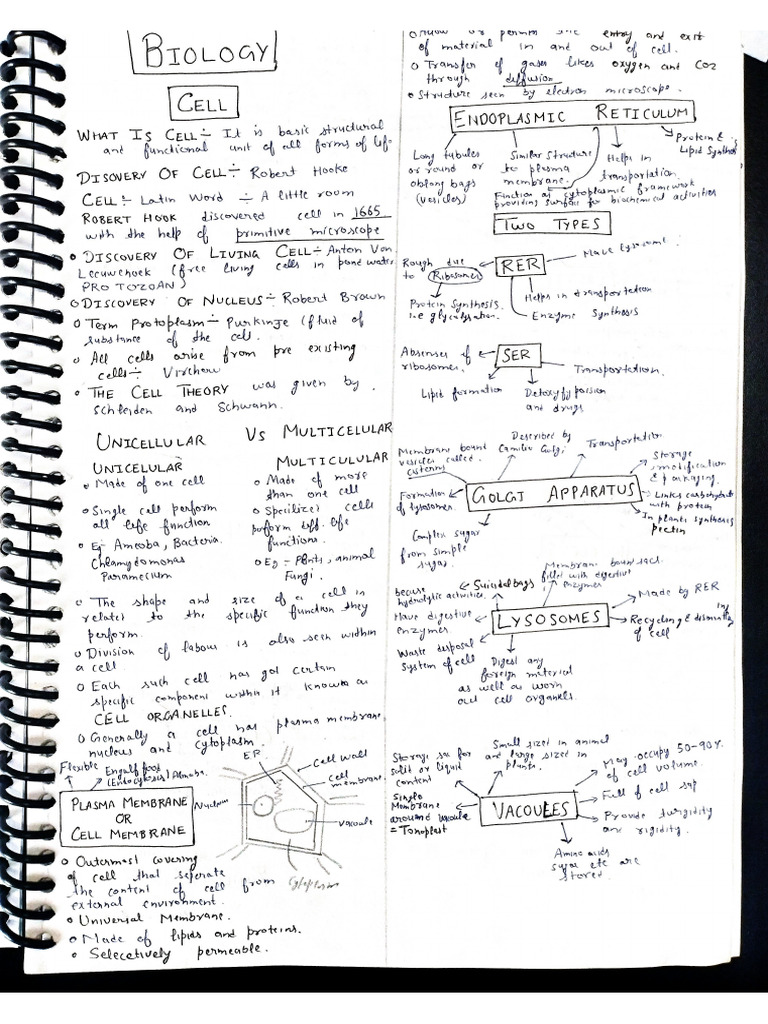 BIOLOGY
CELL
WHAT IS CELL÷ It is basic structural
and functional unit of all forms of life
DISOVERY OF CELL÷ Robert Hooke
CELL÷ Latin Word ÷ A little room
ROBERT HOOK discovered cell in 1665
with the help of primitive microscope
DISCOVERY OF LIVING CELL÷ Anton Von
Leeuwehoek (free living cells in pond water
PROTOZOAN)
DISCOVERY OF NUCLEUS÷ Robert Brown
Term Protoplasm÷ Purkinje (fluid of
substance of the cell.
All cells arise from pre existing
cells÷ Virchow
THE CELL THEORY was given by
Schleiden and Schwann.
UNICELLULAR VS MULTICELULAR
UNICELULAR
Made of one cell
Single cell perform
all life function
Eg Amoeba, Bacteria.
Chlamydomonas
Paramecium
MULTICULULAR
Made of more
than one cell
Specilizes cells
perform diff. life
functions.
Eg = Plants, animal
Fungi.
The shape and size of a cell in
relates to the specific function they
perform.
Division of labour is also seen within
a cell
Each such cell has got certain
specific component within it known as
CELL ORGANELLES.
Generally a cell has plasma membrane,
nucleus and cytoplasm.
Flexible
Engulf food
(Endocytosis) Amoeba.
PLASMA MEMBRANE
OR
CELL MEMBRANE
ER
Cell wall
Cell
membrane.
Nucleus
Vacoule
Cytoplasm
Outermost covering
of cell that seperate
the content of cell from
external environment.
Universal Membrane.
Made of lipids and proteins.
Selecetively permeable.
Allow or permit the entry and exit
of material in and out of cell.
Transfer of gases likes oxygen and CO2
through diffusion
Structure seen by electron microscope.
ENDOPLASMIC RETICULUM
Long tubules
or round or
oblong bags
(vesicles)
Similar structure
to plasma
membrane.
Helps in
transportation.
Protein &
Lipid Synthesis
Function as cytoplasmic framework
providing surface for biochemical activities
TWO TYPES
Rough due
to Ribosomes
RER
Make lysosome
Protein Synthesis.
Helps in transportation
Enzyme Synthesis
Absenses of
ribosomes.
SER
Transportation.
Lipid formation
Detoxify poison
and drugs
Membrane bound
vesicles called.
cisterns
Described by
Camilio Golgi
Transportation
Storage
modification
& packaging.
GOLGI APPARATUS
Formation
of lysosomes.
Links carbohydrate
with protein
In plants synthesis
pectin
Complex sugar
from simple
sugar.
because
hydrolytic activities.
Suicidal bags
Membrane bound sacs
filled with digestive
enzymes
LYSOSOMES
Made by RER
Have digestive
enzymes.
Recycling & dismantling
of cell
Waste disposal
system of cell
Digest any
foreign material
as well as worn
out cell organels.
Storage sac for
solid or liquid
content
Small sized in animal
and large sized in
plants.
May occupy 50-90%
of cell volume.
VACOULES
Single
Membrane
around vacoule
= Tonoplast
Full of cell sap
Provide turgidity
and rigidity.
Amino acids
sugar etc are
stored